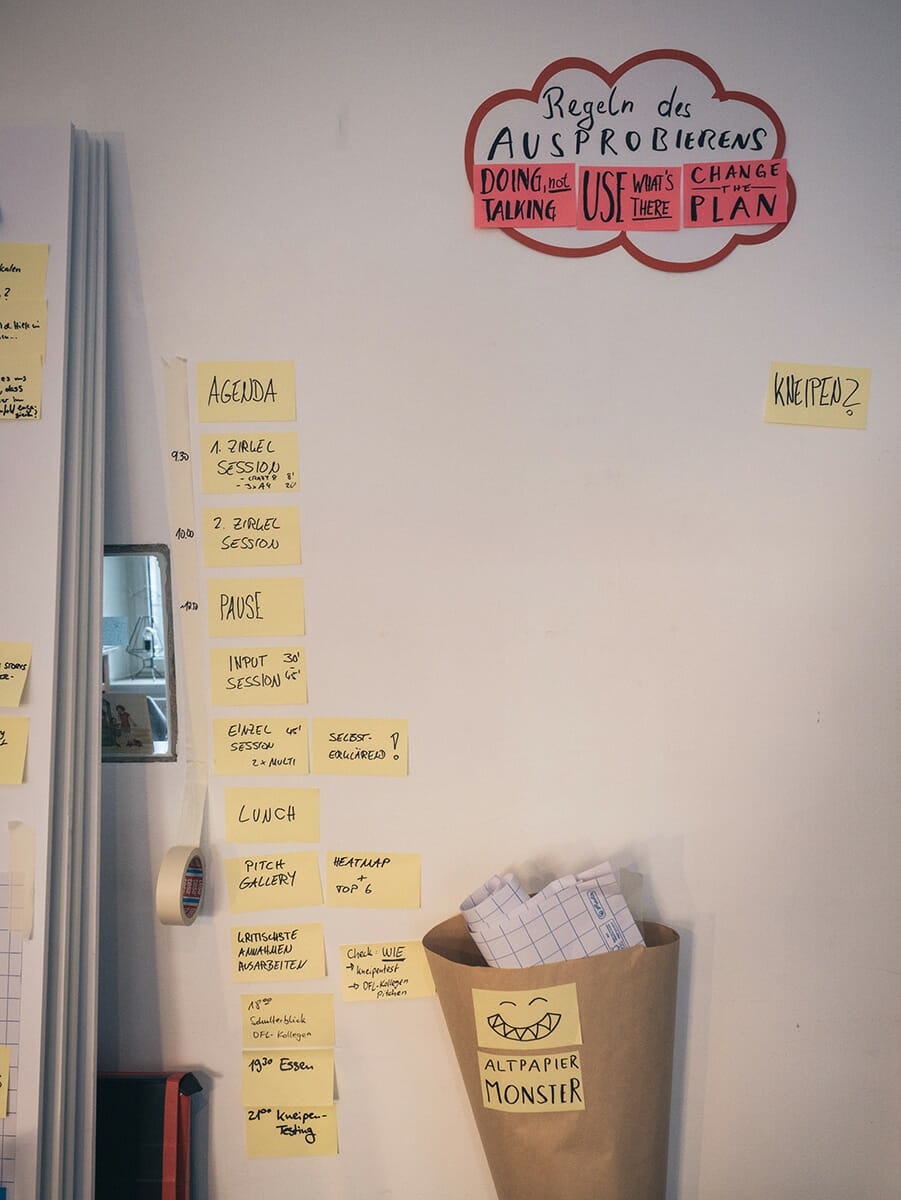 Regeln des
AUSPROBIERENS
DOING, not
TALKING
USE WHAT'S
THERE
CHANGE
THE
PLAN
KNEIPEN?
AGENDA
9.30
1. ZIRKEL
SESSION
- CRAZY 8 8'
- 3xA4 20'
10.00
2. ZIRKEL
SESSION
PAUSE
INPUT 30'
SESSION 45'
EINZEL 45'
SESSION
2x MULTI
SELBST-
ERKLÄREND!
LUNCH
PITCH
GALLERY
HEATMAP
+
TOP 6
KRITISCHSTE
ANNAHMEN
AUSARBEITEN
Check: WIE
→ Kneipentest
→ DFL-Kollegen
pitchen
18⁰⁰
Schulterblick
DFL-Kollegen
19³⁰ Essen
21⁰⁰ Kneipen-
Testing
ALTPAPIER
MONSTER
tesa